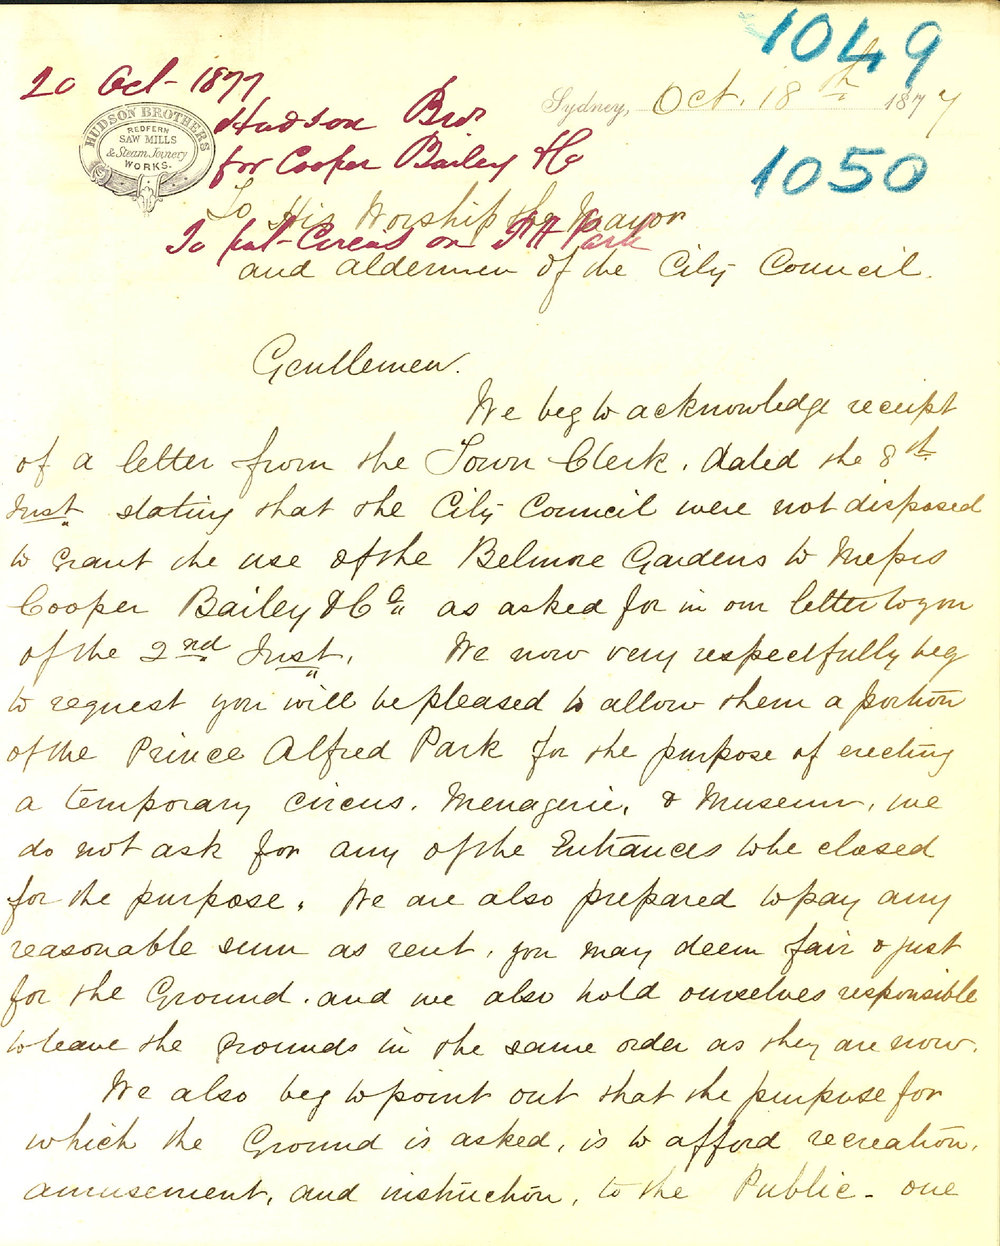 1049
20 Oct- 1877
Sydney, Oct. 18th 1877
HUDSON BROTHERS
REDFERN
SAW MILLS
& Steam Joinery
WORKS.
Hudson Bros
for Cooper Bailey & Co
1050
To His Worship the Mayor
To put Circus on Park
and aldermen of the City Council.
Gentlemen.
We beg to acknowledge receipt
of a letter from the Town Clerk. dated the 8th
Inst stating that the City Council were not disposed
to grant the use of the Belmore Gardens to Messrs
Cooper Bailey & Co as asked for in our letter to you
of the 2nd Inst. We now very respectfully beg
to request you will be pleased to allow them a portion
of the Prince Alfred Park for the purpose of erecting
a temporary circus. Menagerie, & Museum, we
do not ask for any of the Entrances to be closed
for the purpose. We are also prepared to pay any
reasonable sum as rent, you may deem fair & just
for the Ground. and we also hold ourselves responsible
to leave the grounds in the same order as they are now.
We also beg to point out that the purpose for
which the Ground is asked, is to afford recreation,
amusement, and instruction, to the Public - one